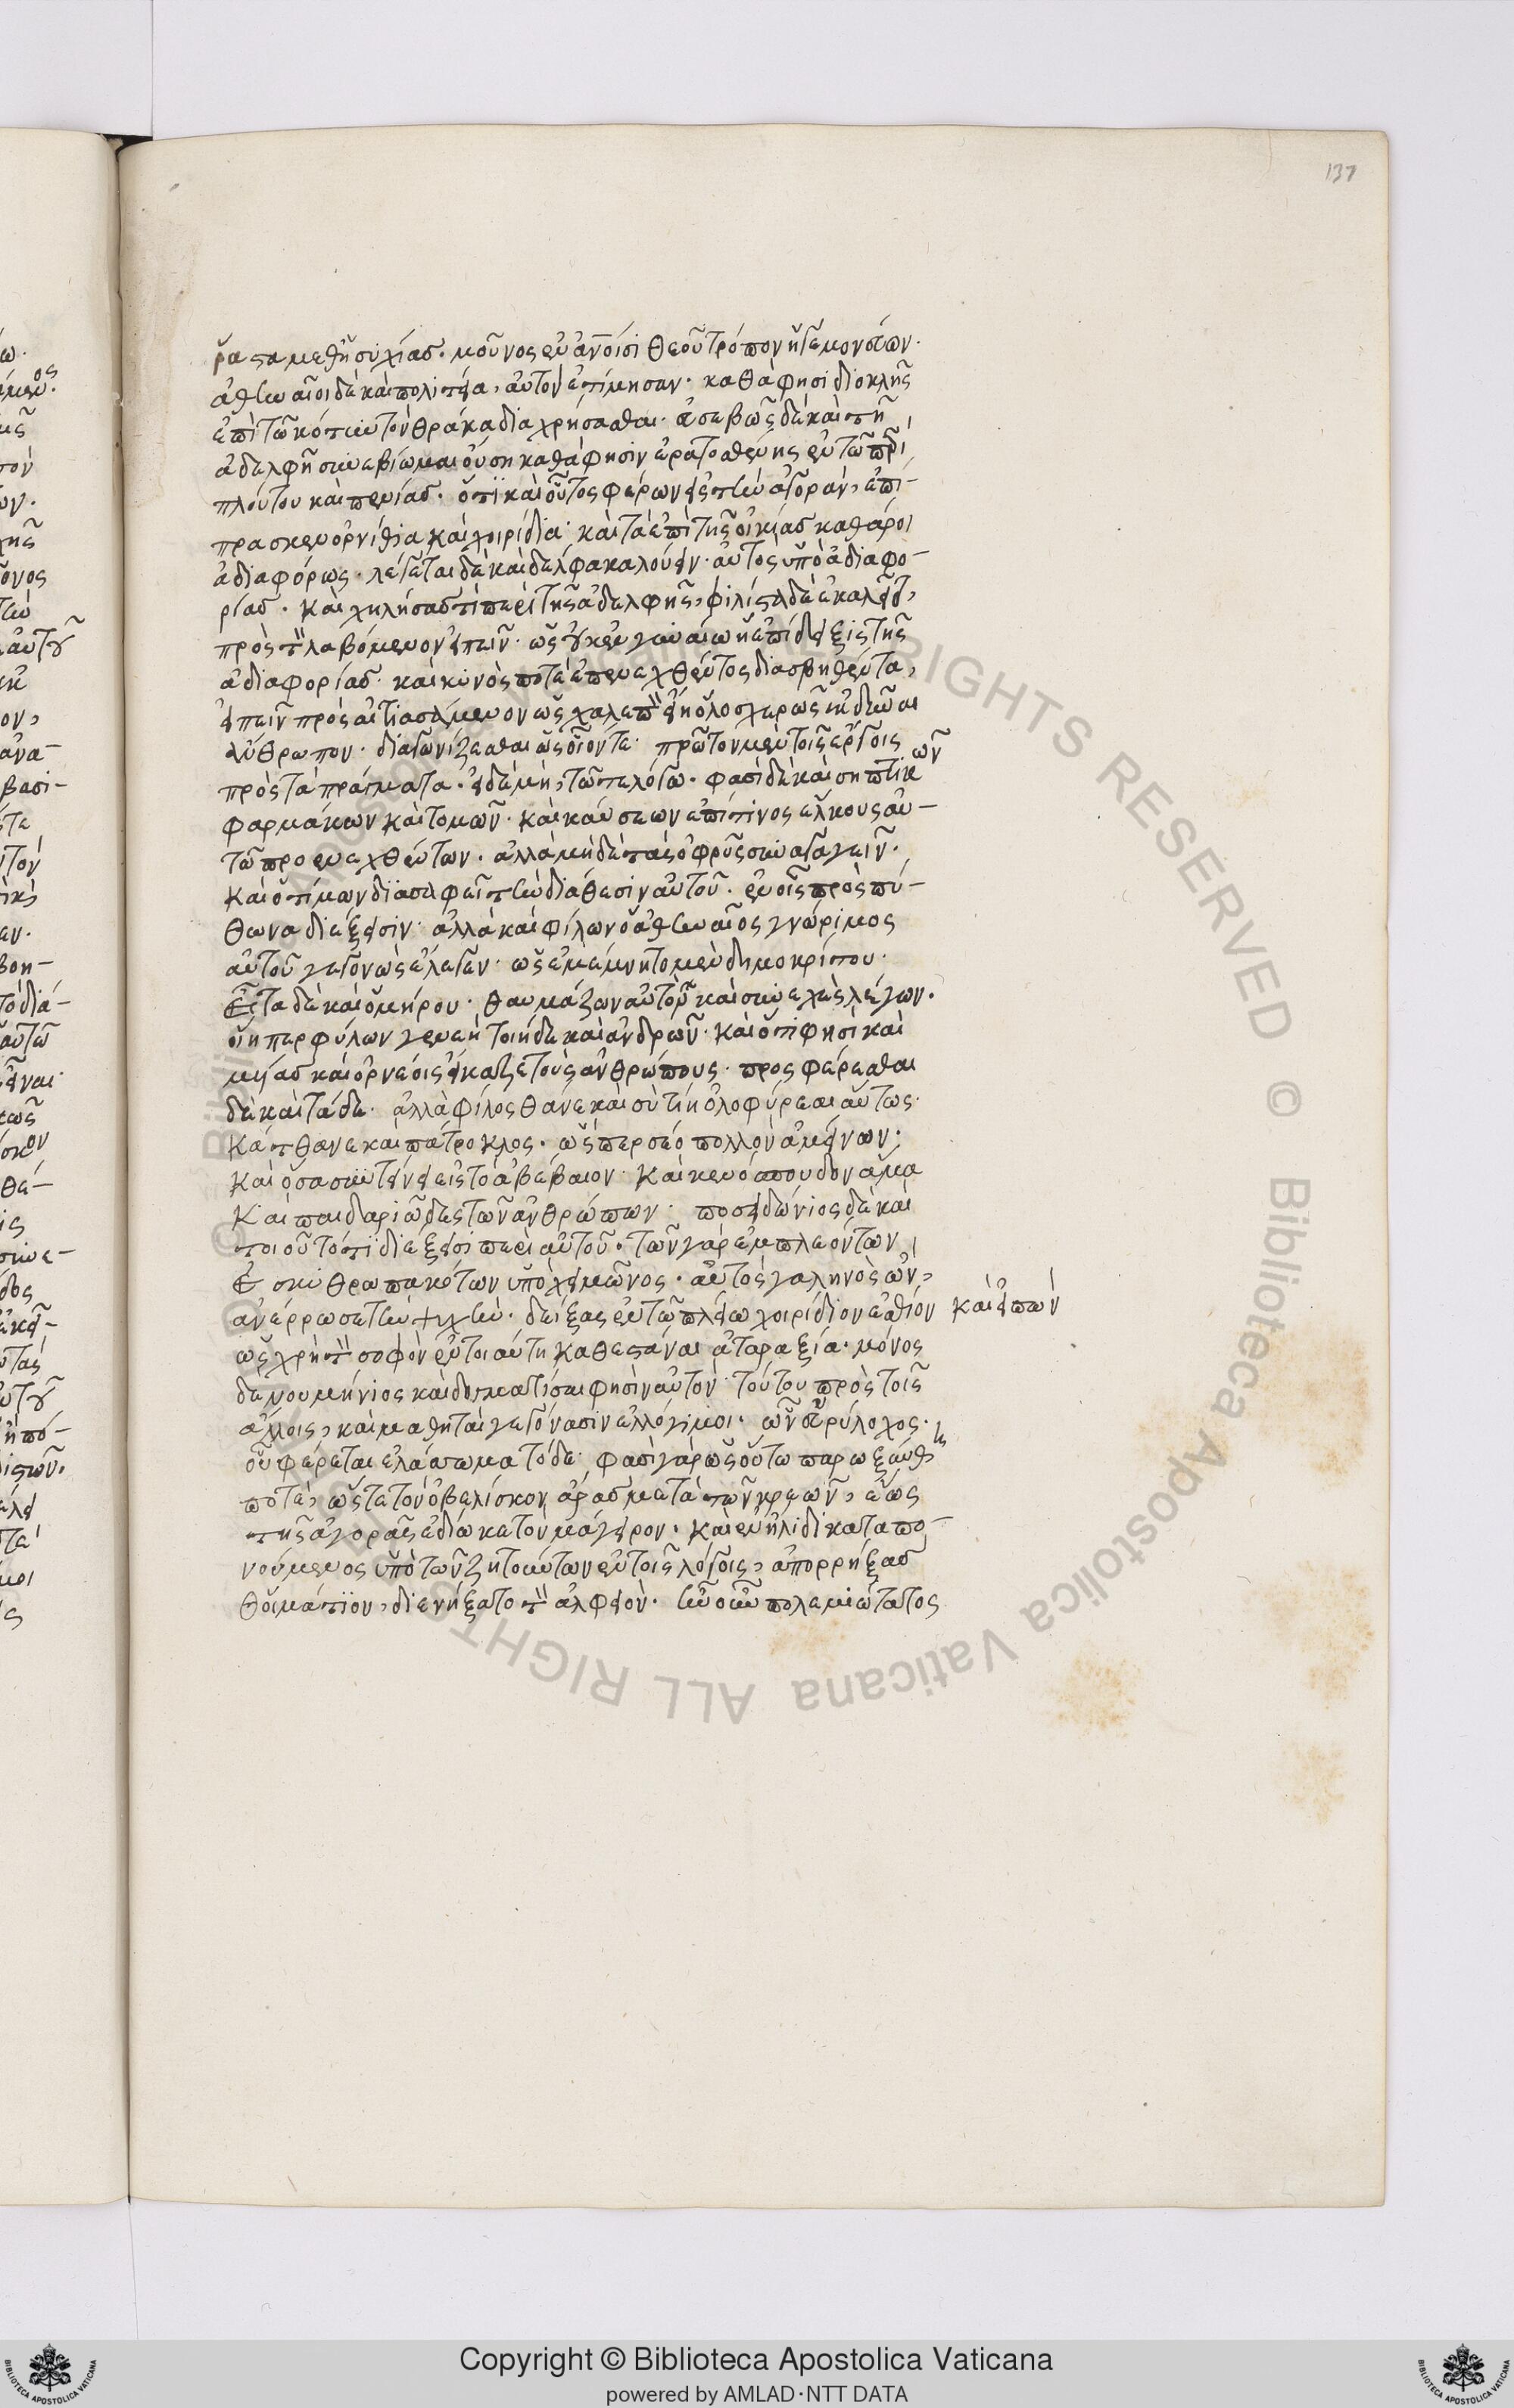 137
ῥᾶστα μεθ' ἡσυχίας. μοῦνος ἐν ἀν̅οισι θεοῦ τρόπον ἡγεμονεύων.
ἀθηναῖοι δὲ καὶ πολιτεία, αὐτὸν ἐτίμησαν. καθά φησι διοκλῆς
ἐπὶ τῶ κότυν τὸν θρᾶκα διαχρήσασθαι. εὐσεβῶς δὲ καὶ τῆ
ἀδελφῆ συνεβίω μαιούση καθά φησιν ἐρατοσθένης ἐν τῶ περὶ
πλούτου καὶ πενίας. ὅτι καὶ οὗτος φέρων εἰς τὴν ἀγορὰν, ἐπι-
πρασκεν ὀρνίθια καὶ χοιρίδια. καὶ τὰ ἐπὶ τῆς οἰκίας καθάροι
ἀδιαφόρως. λέγεται δὲ καὶ δέλφακα λούειν. αὐτὸς ὑπὸ ἀδιαφο-
ρίας. καὶ χολήσας τι περὶ τῆς ἀδελφῆς, φιλίστα δὲ ἐκαλεῖτο,
πρὸς τὸν λαβόμενον εἰπεῖν. ὡς οὐκ ἐν γυναίω ἡ ἐπίδειξις τῆς
ἀδιαφορίας. καὶ κυνός ποτε ἐπενεχθέντος διασβηθέντα,
εἰπεῖν πρὸς αἰτιασάμενον ὡς χαλεπὸν εἴη ὁλοσχερῶς ἐκδῦναι
ἄνθρωπον. διαγωνίζεσθαι ὡς οἷόν τε. πρῶτον μὲν τοῖς ἔργοις
πρὸς τὰ πράγματα. εἰ δὲ μή, τῶ τε λόγω. φασὶ δὲ καὶ σηπτικῶν
φαρμάκων καὶ τομῶν. καὶ καύσεων ἐπί τινος ἕλκους αὐ-
τῶ προενεχθέντων. ἀλλὰ μὴ δὲ τὰς ὀφρῦς συναγαγεῖν.
καὶ ὁ τίμων διασαφεῖ τὴν διάθεσιν αὐτοῦ. ἐν οἷς πρὸς πύ-
θωνα διέξεισιν. ἀλλὰ καὶ φίλων ὁ ἀθηναῖος γνώριμος
αὐτοῦ γεγονὼς ἔλεγεν. ὡς ἐμέμνητο μὲν δημοκρίτου.
εἶτα δὲ καὶ ὁμήρου. θαυμάζων αὐτὸν καὶ συνεχὲς λέγων.
οἵη περ φύλων γενεὴ τοιήδε καὶ ἀνδρῶν. καὶ ὅτι φησὶ καὶ
μυίας καὶ ὀρνέοις εἴκαζε τοὺς ἀνθρώπους. προςφέρεσθαι
δὲ καὶ τάδε. ἀλλὰ φίλος θάνε καὶ σὺ τίη ὀλοφύρεαι αὕτως.
κάτθανε καὶ πάτροκλος. ὥς περ σέο πολλὸν ἀμείνων.
καὶ ὅσα συντείνει εἰς τὸ ἀβέβαιον. καὶ κενόσπουδον ἅμα
καὶ παιδαριῶδες τῶν ἀνθρώπων. ποσειδώνιος δὲ καὶ
τοιοῦτό τι διέξεισι περὶ αὐτοῦ. τῶν γὰρ ἐμπλεόντων
ἐσκυθρωπακότων ὑπὸ χειμῶνος. αὐτὸς γαληνὸς ὢν,
ἀνέρρωσε τὴν ψυχὴν. δείξας ἐν τῶ πλοίω χοιρίδιον ἐσθίον καὶ εἰπὼν
ὡς χρὴ τὸν σοφὸν ἐν τοιαύτη καθεστάναι ἀταραξία. μόνος
δὲ νουμήνιος καὶ δογματίσαι φησὶν αὐτόν. τούτου πρὸς τοῖς
ἄλλοις, καὶ μαθηταὶ γεγόνασιν ἐλλόγιμοι. ὧν εὐρύλοχος.
οὗ φέρεται ἐλάσσωμα τόδε. φασὶ γὰρ ὡς οὕτω παρωξύνθη
ποτὲ, ὥςτε τὸν ὀβελίσκον ἄρας μετὰ τῶν κρεῶν, ἕως
τῆς ἀγορᾶς ἐδίωκε τὸν μάγειρον. καὶ ἐν ἤλιδι καταπο-
νούμενος ὑπὸ τῶν ζητούντων ἐν τοῖς λόγοις, ἀπορρήξας
θοἰμάτιον, διενήξατο τὸν ἀλφειόν. ἦν οὖν πολεμιώτατος
© Biblioteca Apostolica Vaticana ALL RIGHTS RESERVED
Copyright © Biblioteca Apostolica Vaticana
powered by AMLAD·NTT DATA